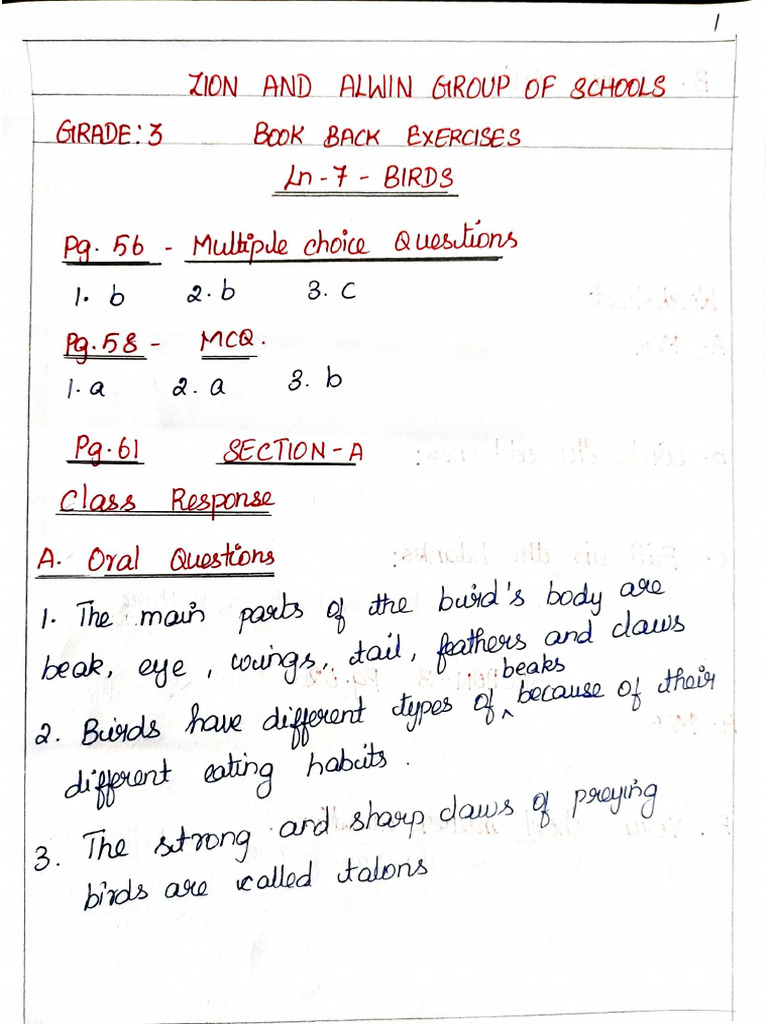 1
ZION AND ALWIN GROUP OF SCHOOLS
GRADE: 3 BOOK BACK EXERCISES
Ln - 7 - BIRDS
Pg. 56 - Multiple choice Questions
1. b 2. b 3. c
Pg. 58 - MCQ.
1. a 2. a 3. b
Pg. 61 SECTION - A
Class Response
A. Oral Questions
1. The main parts of the bird's body are
beak, eye, wings, tail, feathers and claws
2. Birds have different types of beaks because of their
different eating habits.
3. The strong and sharp claws of preying
birds are called talons